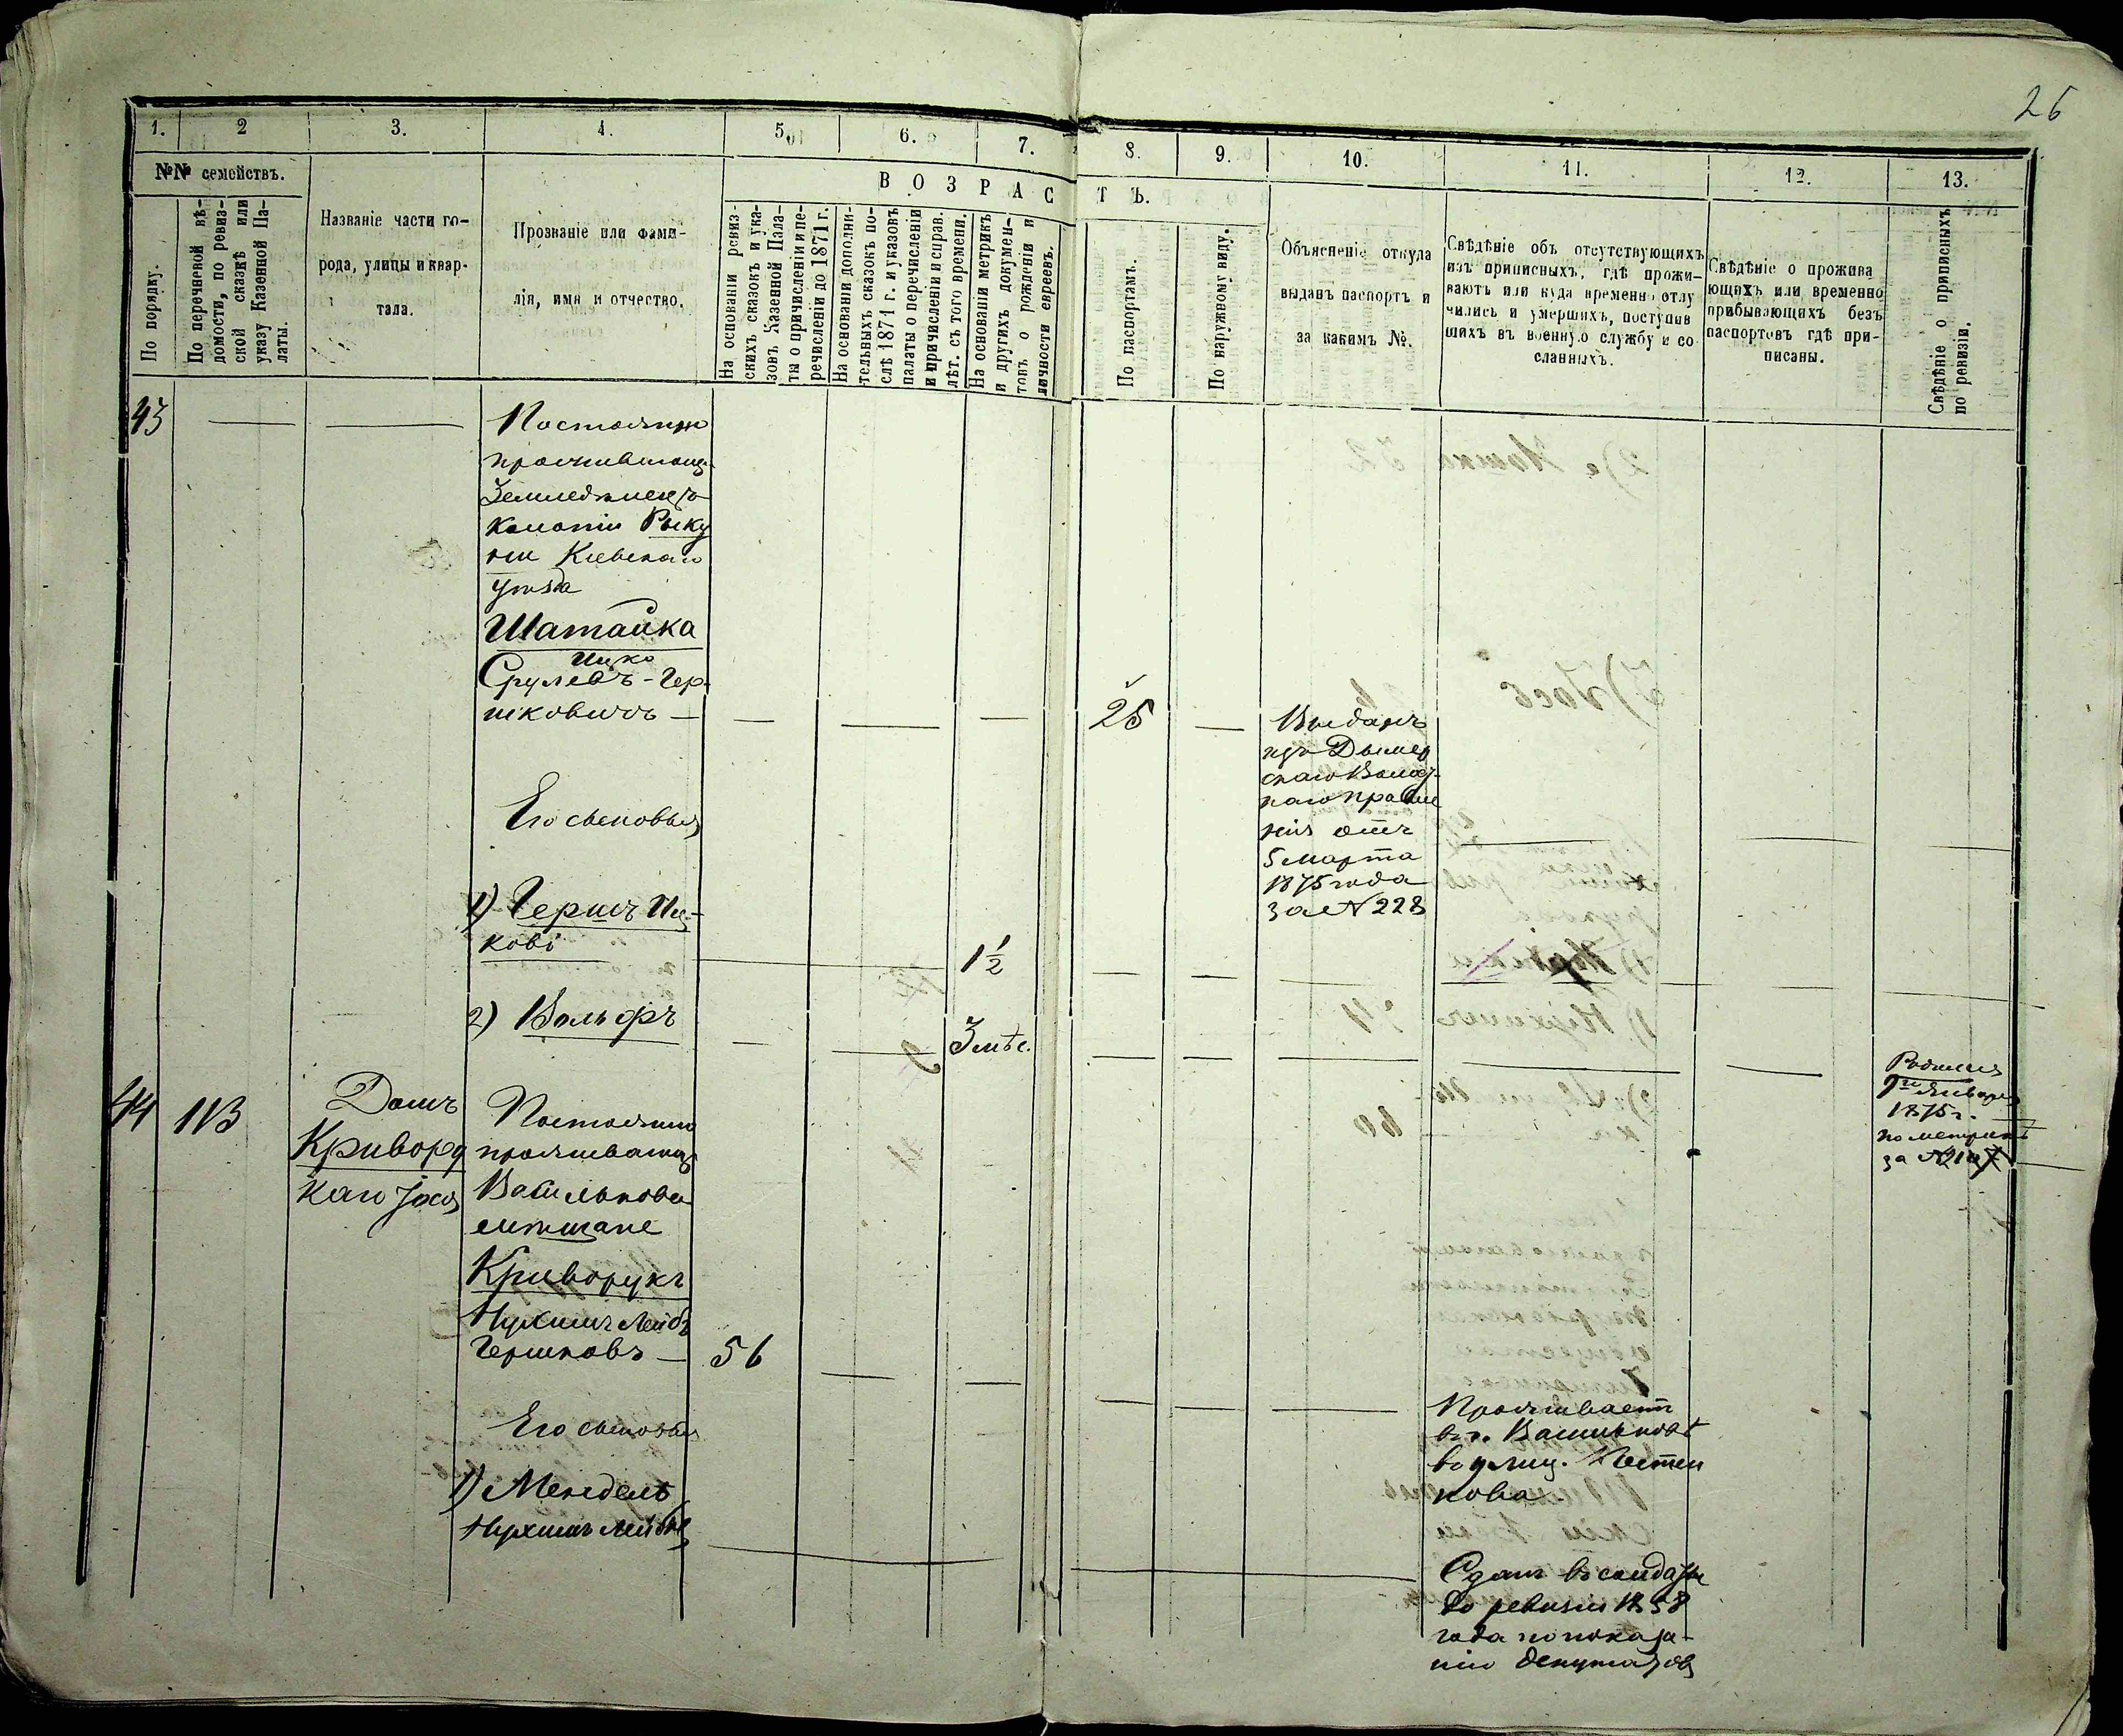 26
1. 2 3. 4. 5. 6. 7. 8. 9. 10. 11. 12. 13.
№№ семействъ.
По порядку.
По перечневой вѣ-
домости, по ревиз-
ской сказкѣ или
указу Казенной Па-
латы.
Названіе части го-
рода, улицы и квар-
тала.
Прозваніе или фами-
лія, имя и отчество.
ВОЗРАСТЪ.
На основаніи ревиз-
скихъ сказокъ и ука-
зовъ Казенной Пала-
ты о причисленіи и пе-
речисленіи до 1871 г.
На основаніи дополни-
тельныхъ сказокъ по-
слѣ 1871 г. и указовъ
палаты о перечисленіи
и причисленіи и справ.
лѣт. съ того времени.
На основаніи метрикъ
и другихъ докумен-
товъ о рожденіи и
личности евреевъ.
По паспортамъ.
По наружному виду.
Объясненіе откуда
выданъ паспортъ и
за какимъ №.
Свѣдѣніе объ отсутствующихъ
изъ приписныхъ, гдѣ прожи-
ваютъ или куда временно отлу
чились и умершихъ, поступив
шихъ въ военную службу и со
сланныхъ.
Свѣдѣніе о прожива
ющихъ или временно
прибывающихъ безъ
паспортовъ гдѣ при-
писаны.
Свѣдѣніе о приписныхъ
по ревизіи.
43
Постоянно
проживающ.
Земледѣлецъ
колоніи Рыку
ни Кіевскаго
уѣзда
Шатайка
Ицко
Срулевъ-Гер-
шковичъ
25
Выданъ
изъ Дымер
скаго Волос
наго правле
нія отъ
5 Марта
1875 года
за № 228
Его сыновья
1) Гершъ Иц-
кові
1½
2) Вольфъ
3 мѣс.
Родился
Января
1875 г.
по метрикѣ
за №
44 113
Домъ
Криворо
Постоянно
проживающ
Васильковс
мѣщане
Криворукъ
Нухимъ Лейбъ
Гершковъ
56
Проживаетъ
въ г. Васильковѣ
въ улиц.
Его сыновья
1) Мендель
Нухимъ Лейбов
Сданъ въ солдаты
до ревизіи 1858
года по показа-
нію депутатов